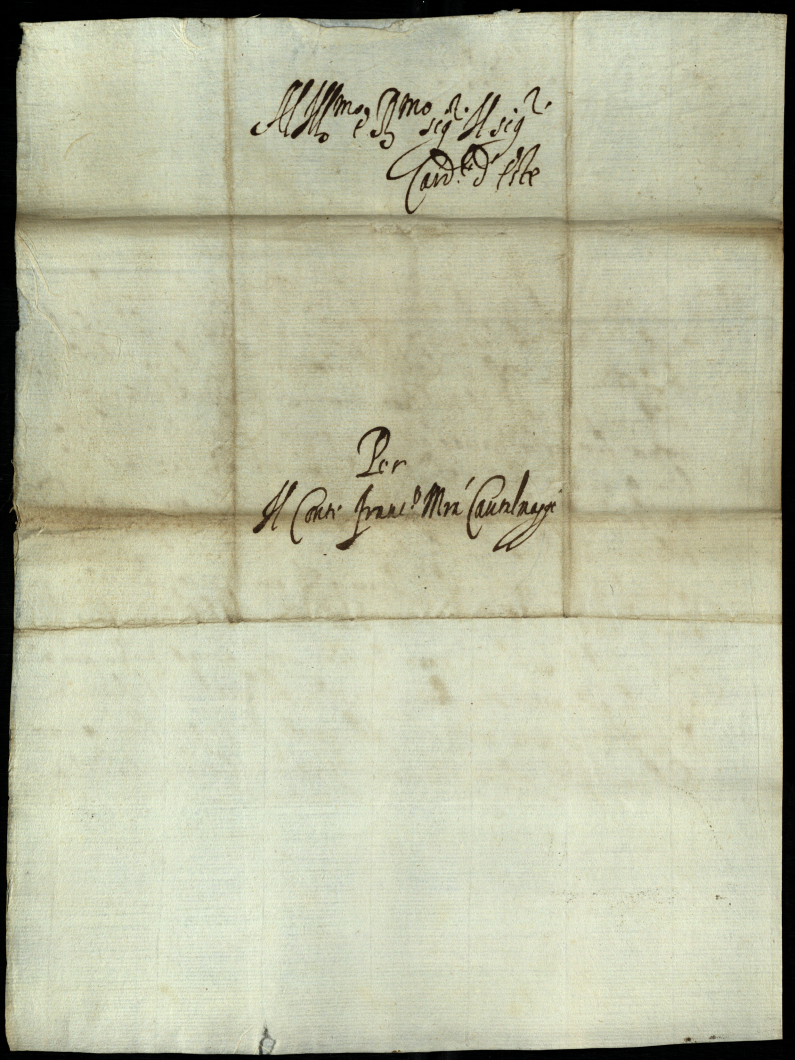 All Ill.mo e R.mo sig.r Il sig.r
Card.le d'Este
Per
Il Conte Franc.o M.ria